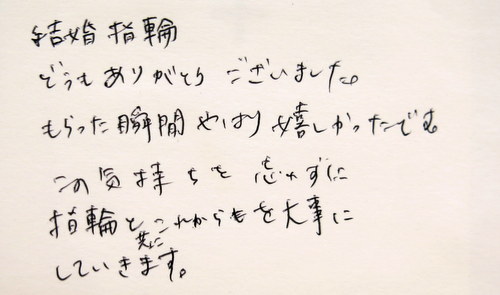 結婚指輪
どうもありがとうございました。
もらった瞬間やはり嬉しかったです。
この気持ちを忘れずに
指輪と共にこれからもを大事に
していきます。